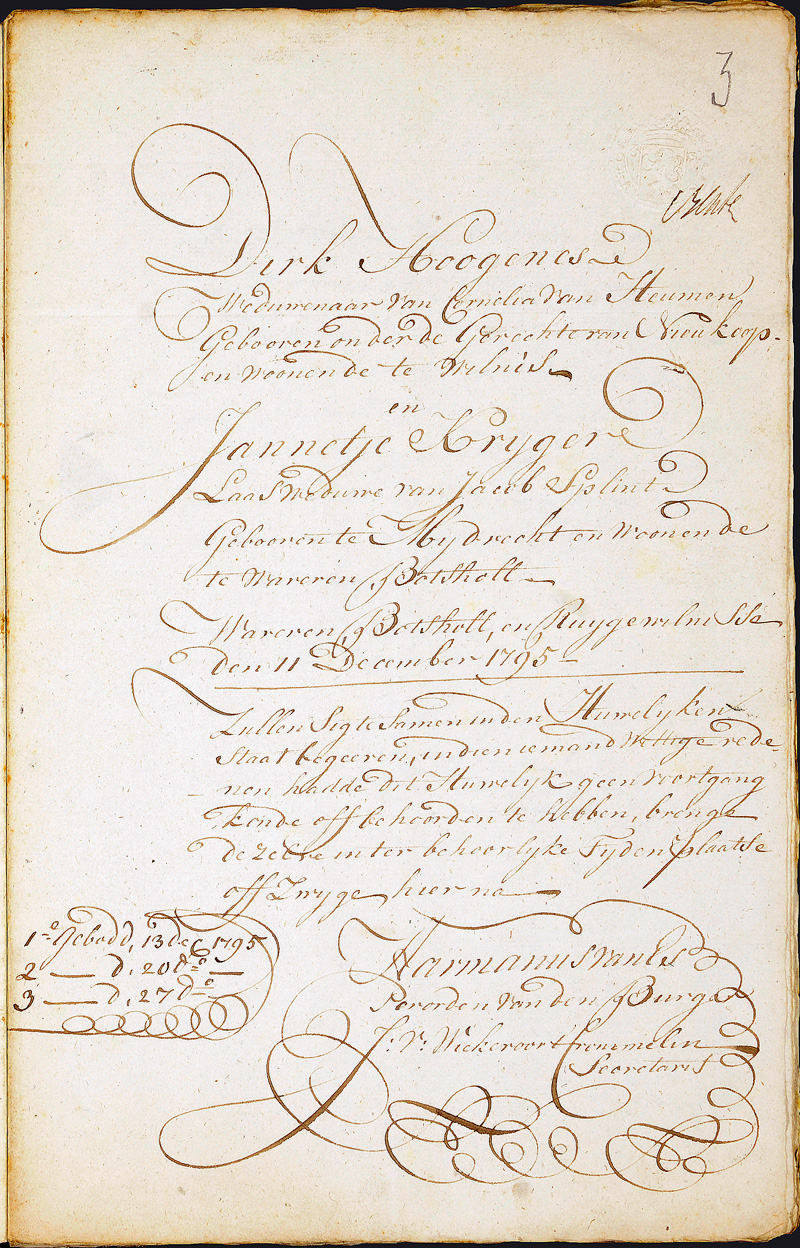 3
Dirk Hoogenes
Weduwenaar van Cornelia van Heumen
Gebooren onder de Gerechte van Nieukoop
en Woonende te Wilnis
en
Jannetje Kryger
Laas Weduwe van Jacob Splint
Gebooren te Mydrecht en Woonende
te Waveren, Botsholl
Waveren, Botsholl, en Ruygewilnisse
den 11 December 1795
Zullen Sig te Samen in den Huwelyken
Staat begeeven, indien iemand Wettige rede-
nen hadde dit Huwelyk geen voortgang
konde off behoorden te hebben, brenge
dezelve in ter behoorlyke Tyd en plaatse
off Zwyge hier na
1e Gebodt, 13 dec 1795
2 — d. 20 do —
3 — d. 27 do
Harmanus van Es
Per orden van den Burger
J: V: Wickevoort Crommelin
Secretaris